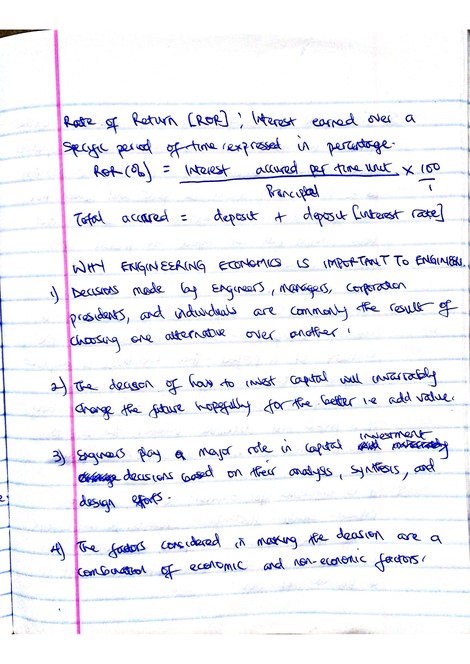 Rate of Return [ROR] ; Interest earned over a
specific period of time expressed in percentage.
ROR (%) = Interest accured per time unit × 100
Principal 1
Total accured = deposit + deposit [interest rate]
WHY ENGINEERING ECONOMICS IS IMPORTANT TO ENGINEERS.
1) Decisions made by engineers, managers, corporation
presidents, and individuals are commonly the result of
choosing one alternative over another.
2) The decision of how to invest capital will invariably
change the future hopefully for the better i.e add value.
3) Engineers play a major role in capital investment
decisions based on their analysis, synthesis, and
design efforts.
4) The factors considered in making the decision are a
combination of economic and non-economic factors.